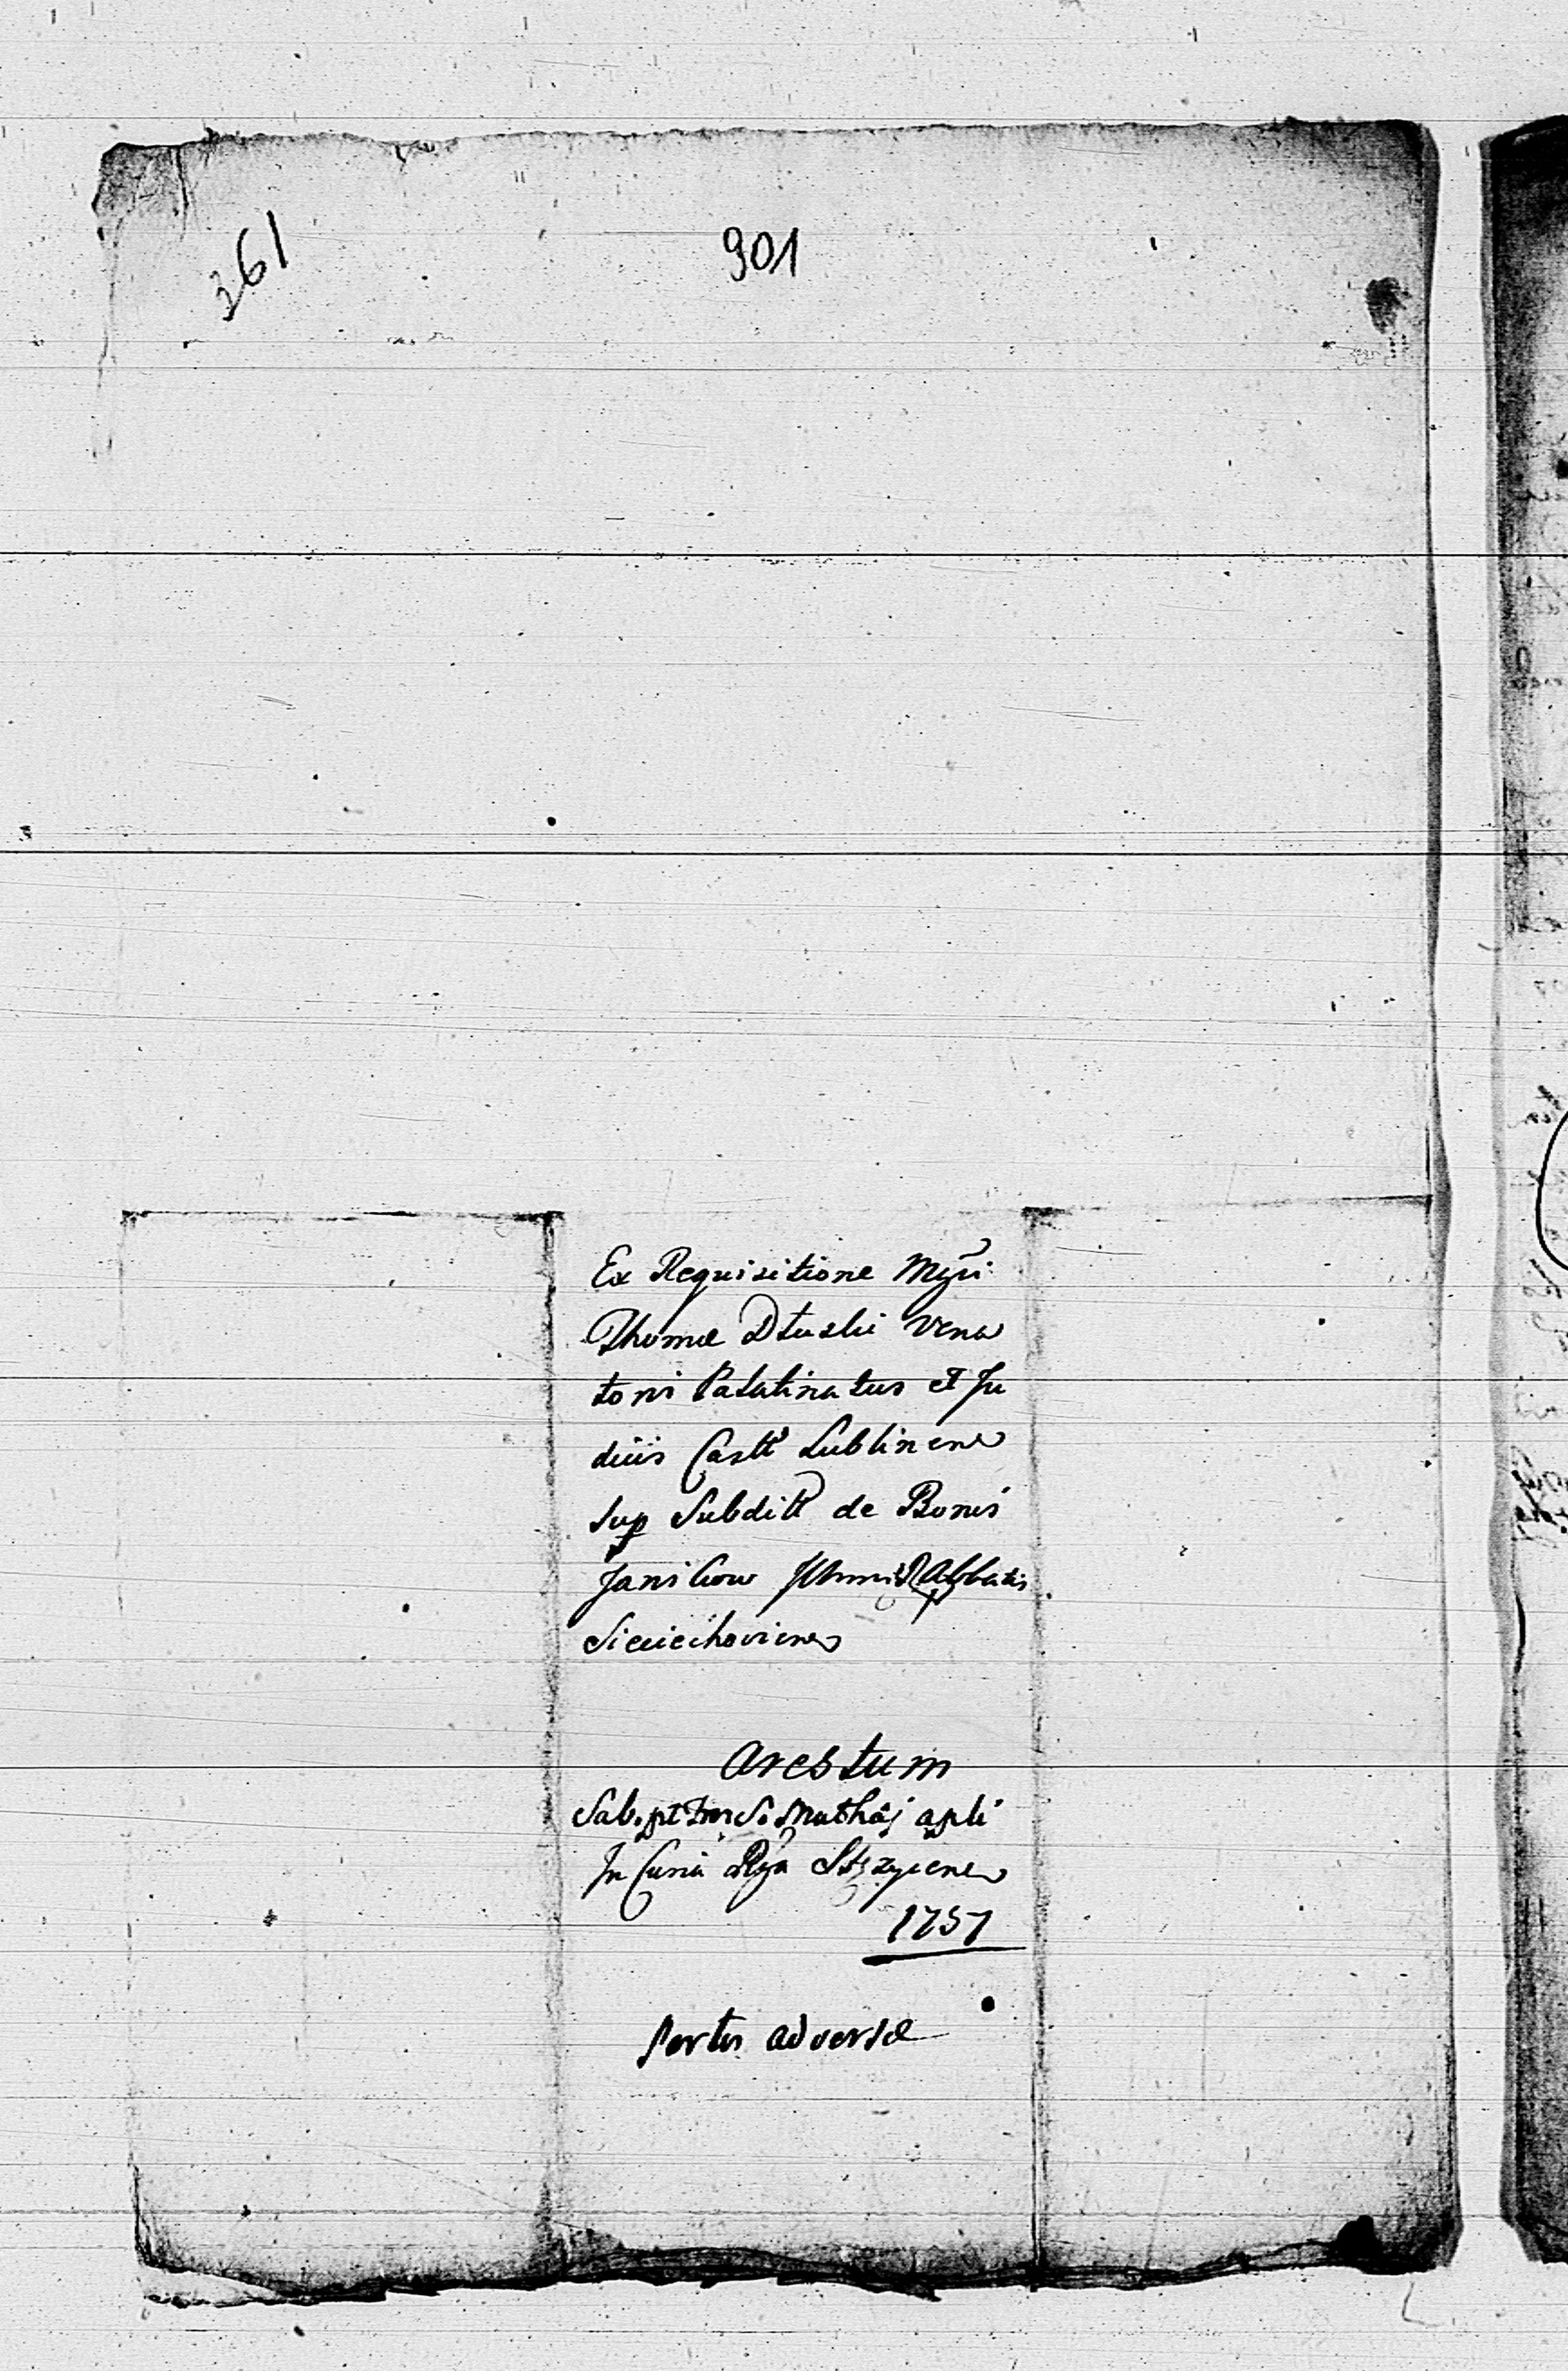 361
901
Ex Requisitione Mgci
Thomæ Dłuski Vena
toris Palatinatus et Ju
dicis Castr Lublinens
sup Subditt de Bonis
Janikow Abbatis
Sieciechoviens
Arestum
Sab. pt S. Mathæj apli
In Curia Rgia Stężyciens
1757
Partis adversæ